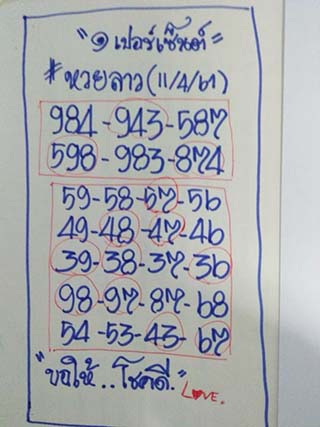 "๑ เปอร์เซ็นต์"
# หวยลาว (11/4/61)
984-943-587
598-983-874
59-58-57-56
49-48-47-46
39-38-37-36
98-97-87-68
54-53-43-67
"ขอให้..โชคดี."
LOVE.